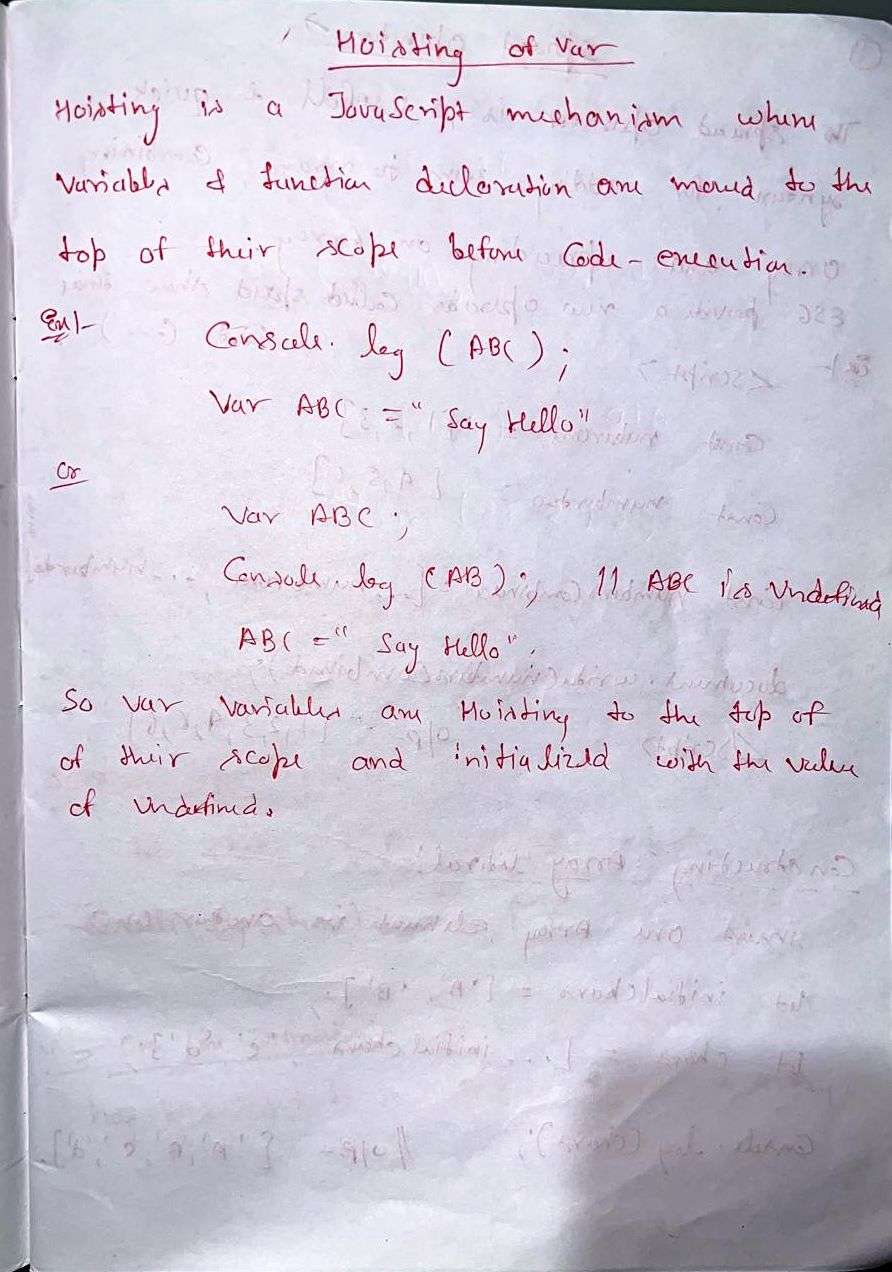 Hoisting of Var
Hoisting is a JavaScript mechanism where
Variables & function declaration are moved to the
top of their scope before Code-execution.
Ex!-
Console. log (ABC);
Var ABC = "Say Hello"
Or
Var ABC ;
Console. log (AB); // ABC is Undefined
ABC = "Say Hello".
So var variables are Hoisting to the top of
of their scope and initialized with the value
of Undefined.